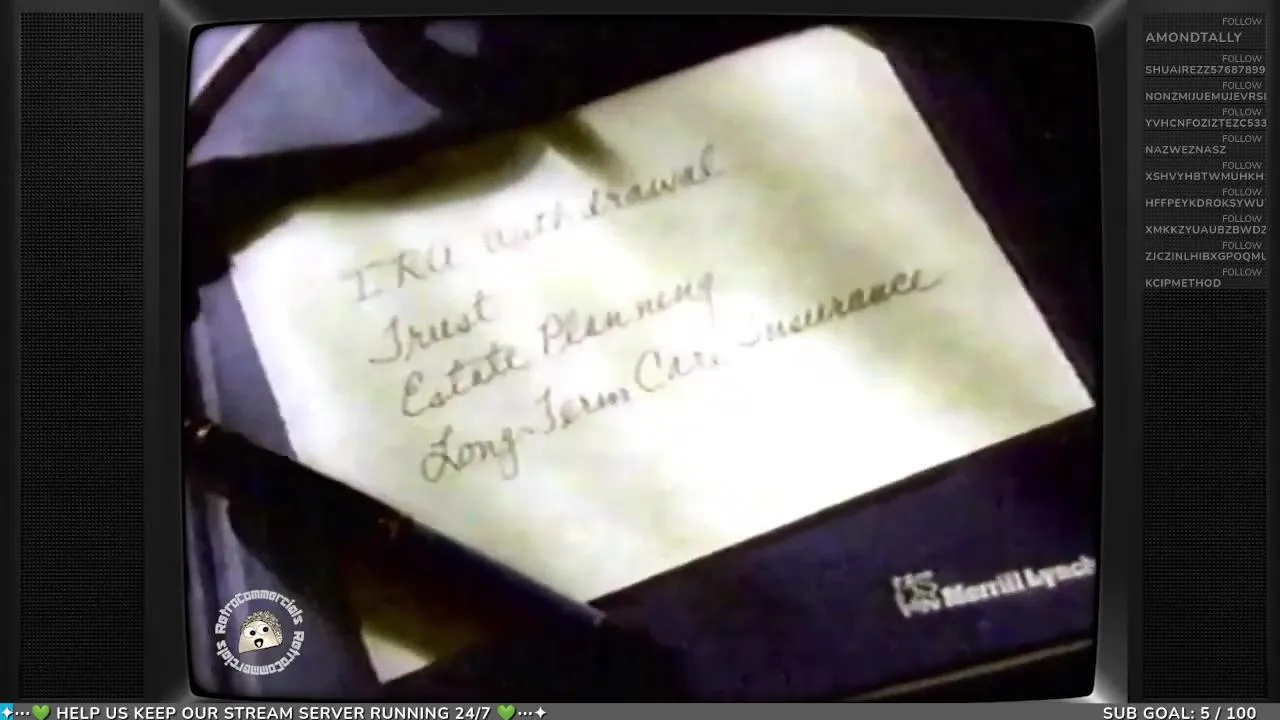 IRA withdrawal
Trust
Estate Planning
Long-Term Care Insurance
Merrill Lynch
RetroCommercials RetroCommercials
FOLLOW
AMONDTALLY
FOLLOW
SHUAIREZZ57687899
FOLLOW
NONZMIJUEMUJEVRSI
FOLLOW
YVHCNFOZIZTEZC533
FOLLOW
NAZWEZNASZ
FOLLOW
XSHVYHBTWMUHKH
FOLLOW
HFFPEYKDROKSYWU
FOLLOW
XMKKZYUAUBZBWDZ
FOLLOW
ZJCZINLHIBXGPOQMU
FOLLOW
KCIPMETHOD
HELP US KEEP OUR STREAM SERVER RUNNING 24/7
SUB GOAL: 5 / 100